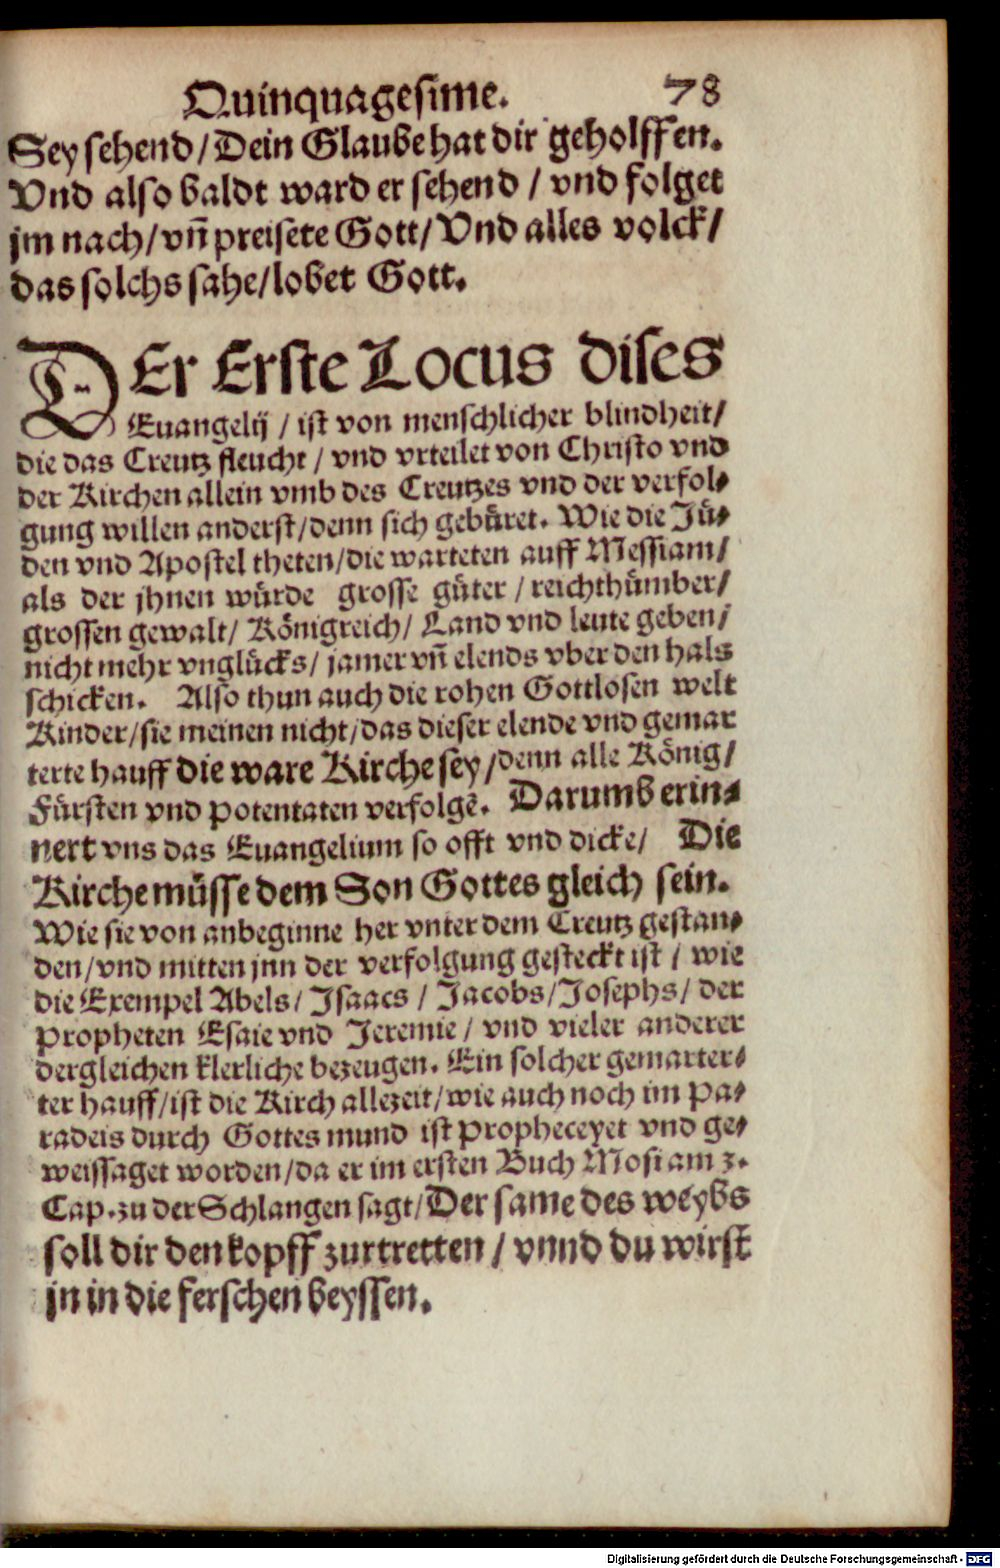 Quinquagesime. 78
Sey sehend / Dein Glaube hat dir geholffen.
Vnd also baldt ward er sehend / vnd folget
jm nach / vñ preisete Gott / Vnd alles volck /
das solchs sahe / lobet Gott.
DEr Erste Locus dises
Euangelij / ist von menschlicher blindheit /
die das Creutz fleucht / vnd vrteilet von Christo vnd
der Kirchen allein vmb des Creutzes vnd der verfol-
gung willen anderst / denn sich gebüret. Wie die Jü-
den vnd Apostel theten / die warteten auff Messiam /
als der jhnen würde grosse güter / reichthümber /
grossen gewalt / Königreich / Land vnd leute geben /
nicht mehr vnglücks / jamer vñ elends vber den hals
schicken. Also thun auch die rohen Gottlosen welt
Kinder / sie meinen nicht / das dieser elende vnd gemar
terte hauff die ware Kirche sey / denn alle König /
Fürsten vnd Potentaten verfolgẽ. Darumb erin-
nert vns das Euangelium so offt vnd dicke / Die
Kirche müsse dem Son Gottes gleich sein.
Wie sie von anbeginne her vnter dem Creutz gestan-
den / vnd mitten jnn der verfolgung gesteckt ist / wie
die Exempel Abels / Isaacs / Jacobs / Josephs / der
Propheten Esaie vnd Jeremie / vnd vieler anderer
dergleichen klerliche bezeugen. Ein solcher gemarter-
ter hauff / ist die Kirch allezeit / wie auch noch im Pa-
radeis durch Gottes mund ist Propheceyet vnd ge-
weissaget worden / da er im ersten Buch Mosi am 3.
Cap. zu der Schlangen sagt / Der same des weybs
soll dir den kopff zurtretten / vnnd du wirst
jn in die ferschen beyssen.
Digitalisierung gefördert durch die Deutsche Forschungsgemeinschaft - DFG